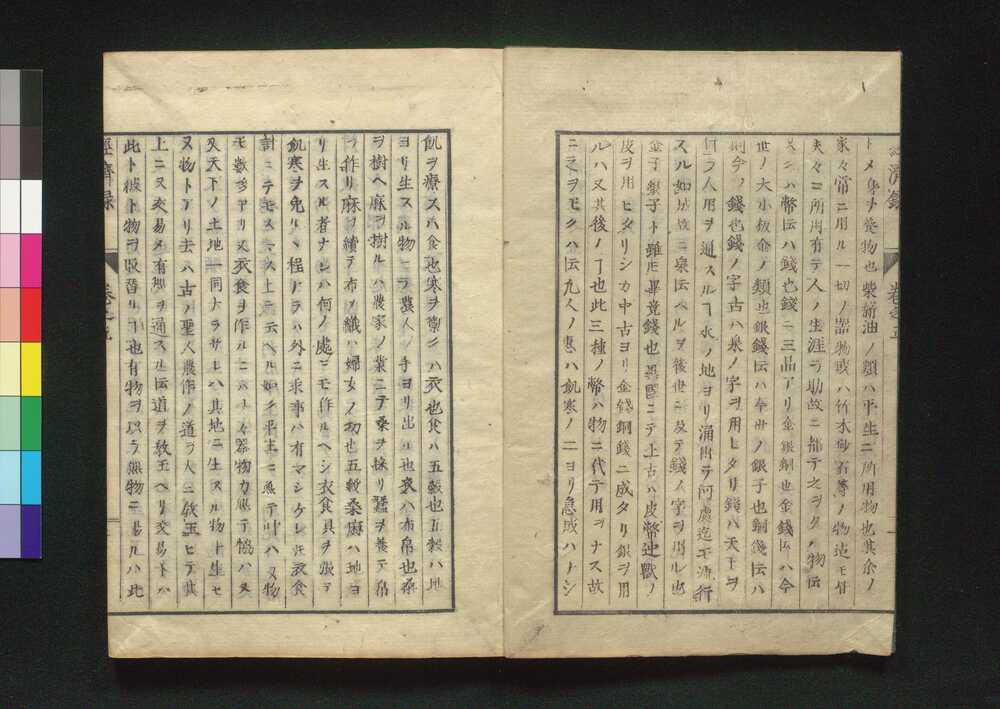 トメ身ヲ養物也柴薪油ノ類ハ平生ニ所用物也其余ノ
家々常ニ用ル一切ノ器物或ハ竹木砂石等ノ物迄モ皆
夫々ニ所用有テ人ノ生涯ヲ助故ニ都テ之ヲタノ物伝
ハ幣伝ハ錢也錢ニ三品アリ金銀銅也金錢伝ハ今
世ノ大小板金ノ類也銀錢伝ハ今世ノ銀子也銅錢伝ハ
今ノ錢也錢ノ字古ハ泉ノ字ヲ用ヒタリ錢ハ天下ヲ
人用ヲ通スルヿ水ノ地ヨリ涌出テ
スル如故ニ泉伝ヘルヲ後世ニ及テ錢ノ字ヲ用ル也
金子銀子ト雖𪜈畢竟錢也異国ニテ上古ハ皮幣迚獸ノ
皮ヲ用ヒタリシカ中古ヨリ金錢銅錢ニ成タリ銀ヲ用
ルハ又其後ノヿ也此三種ノ幣ハ物ニ代テ用ヲナス故
ニヲモクハ伝凡人ノ患ハ飢寒ノ二ヨリ急成ハナシ
飢ヲ療スハ食也寒ヲ禦クハ衣也食ハ五穀也五穀ハ地
ヨリ生スル物ニテ農人ノ手ヨリ出ル也衣ハ布帛也桑
ヲ樹ヘ麻ヲ樹ルハ農家ノ業ニテ桑ヲ採リ蠶ヲ養テ帛
ヲ作リ麻ヲ績テ布ヲ織ハ婦女ノ功也五穀桑麻ハ地ヨ
リ生スル者ナレハ何ノ處ニモ作ルヘシ衣食具ヲ
飢寒ヲ免ルヽ程ナラハ外ニ求事ハ有マシケレ𪜈衣食
計ニテモスマス上ニ云ヘル如ク平生ニ無テ叶ハヌ物
モ數多アリ又衣食ヲ作ルニ器物カ無テ協ハヌ
又天下ノ土地一同ナラサレハ其地ニ生スル物ト生セ
ヌ物トアリ去ハ古ノ聖人農作ノ道ヲ人ニ教玉ヒテ其
上ニ又交易メ有無ヲ通スル伝道ヲ教玉ヘリ交易トハ
此ト彼ト物ヲ取替ルヿ也有物ヲ以テ無物ニ易ルハ此
經濟録
卷之五